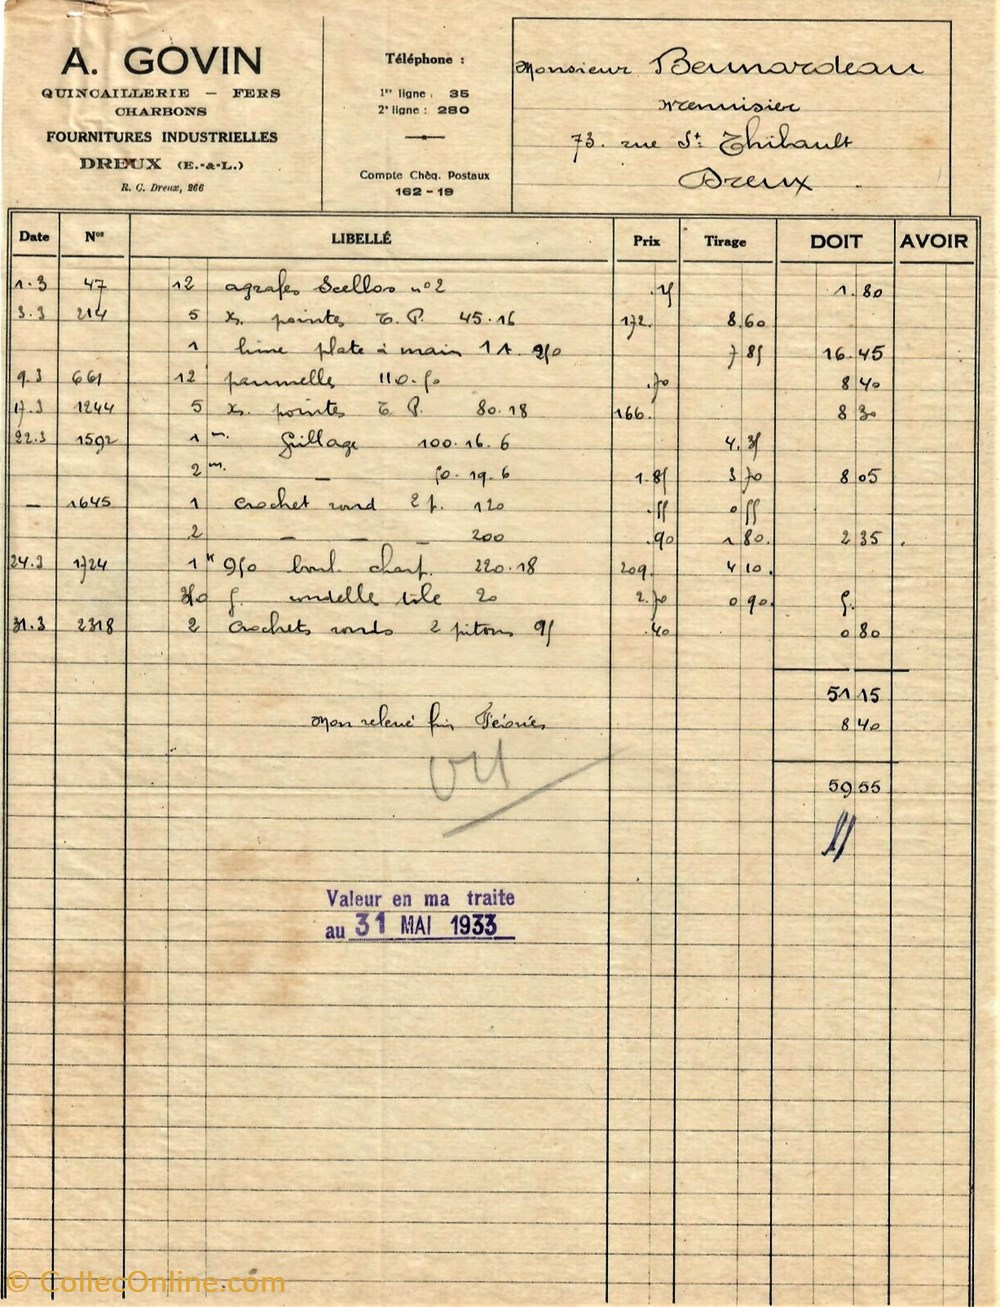 A. GOVIN
QUINCAILLERIE – FERS
CHARBONS
FOURNITURES INDUSTRIELLES
DREUX (E.-&-L.)
R. C. Dreux, 266
Téléphone :
1re ligne : 35
2e ligne : 280
Compte Chèq. Postaux
162 - 19
Monsieur Bernardeau
Menuisier
73. rue St Thibault
Dreux
Date Nos LIBELLÉ Prix Tirage DOIT AVOIR
1.3 47 12 agrafes Scellos n°2 .15 1.80
3.3 214 5 K. pointes T.P. 45.16 172. 8.60
1 lime plate à main 1 250 7 85 16.45
9.3 661 12 paumelles 110.50 .70 8 40
17.3 1244 5 K. pointes T.P. 80.18 166. 8 30
22.3 1592 1 m. Grillage 100.16.6 4.35
2 m. — 50.19.6 1.85 3 70 8 05
— 1645 1 crochet rond 2 p. 120 .55 0 55
2 — — — 200 .90 1 80. 2 35
24.3 1724 1 K 950 boul. charp. 220.18 209. 4 10.
g. rondelle tôle 20 2.70 0 90. 5.
31.3 2318 2 crochets ronds 2 pitons 95 .40 0 80
51 15
Mon relevé fin Février 8 40
59 55
VU
Valeur en ma traite
au 31 MAI 1933
© CollecOnline.com